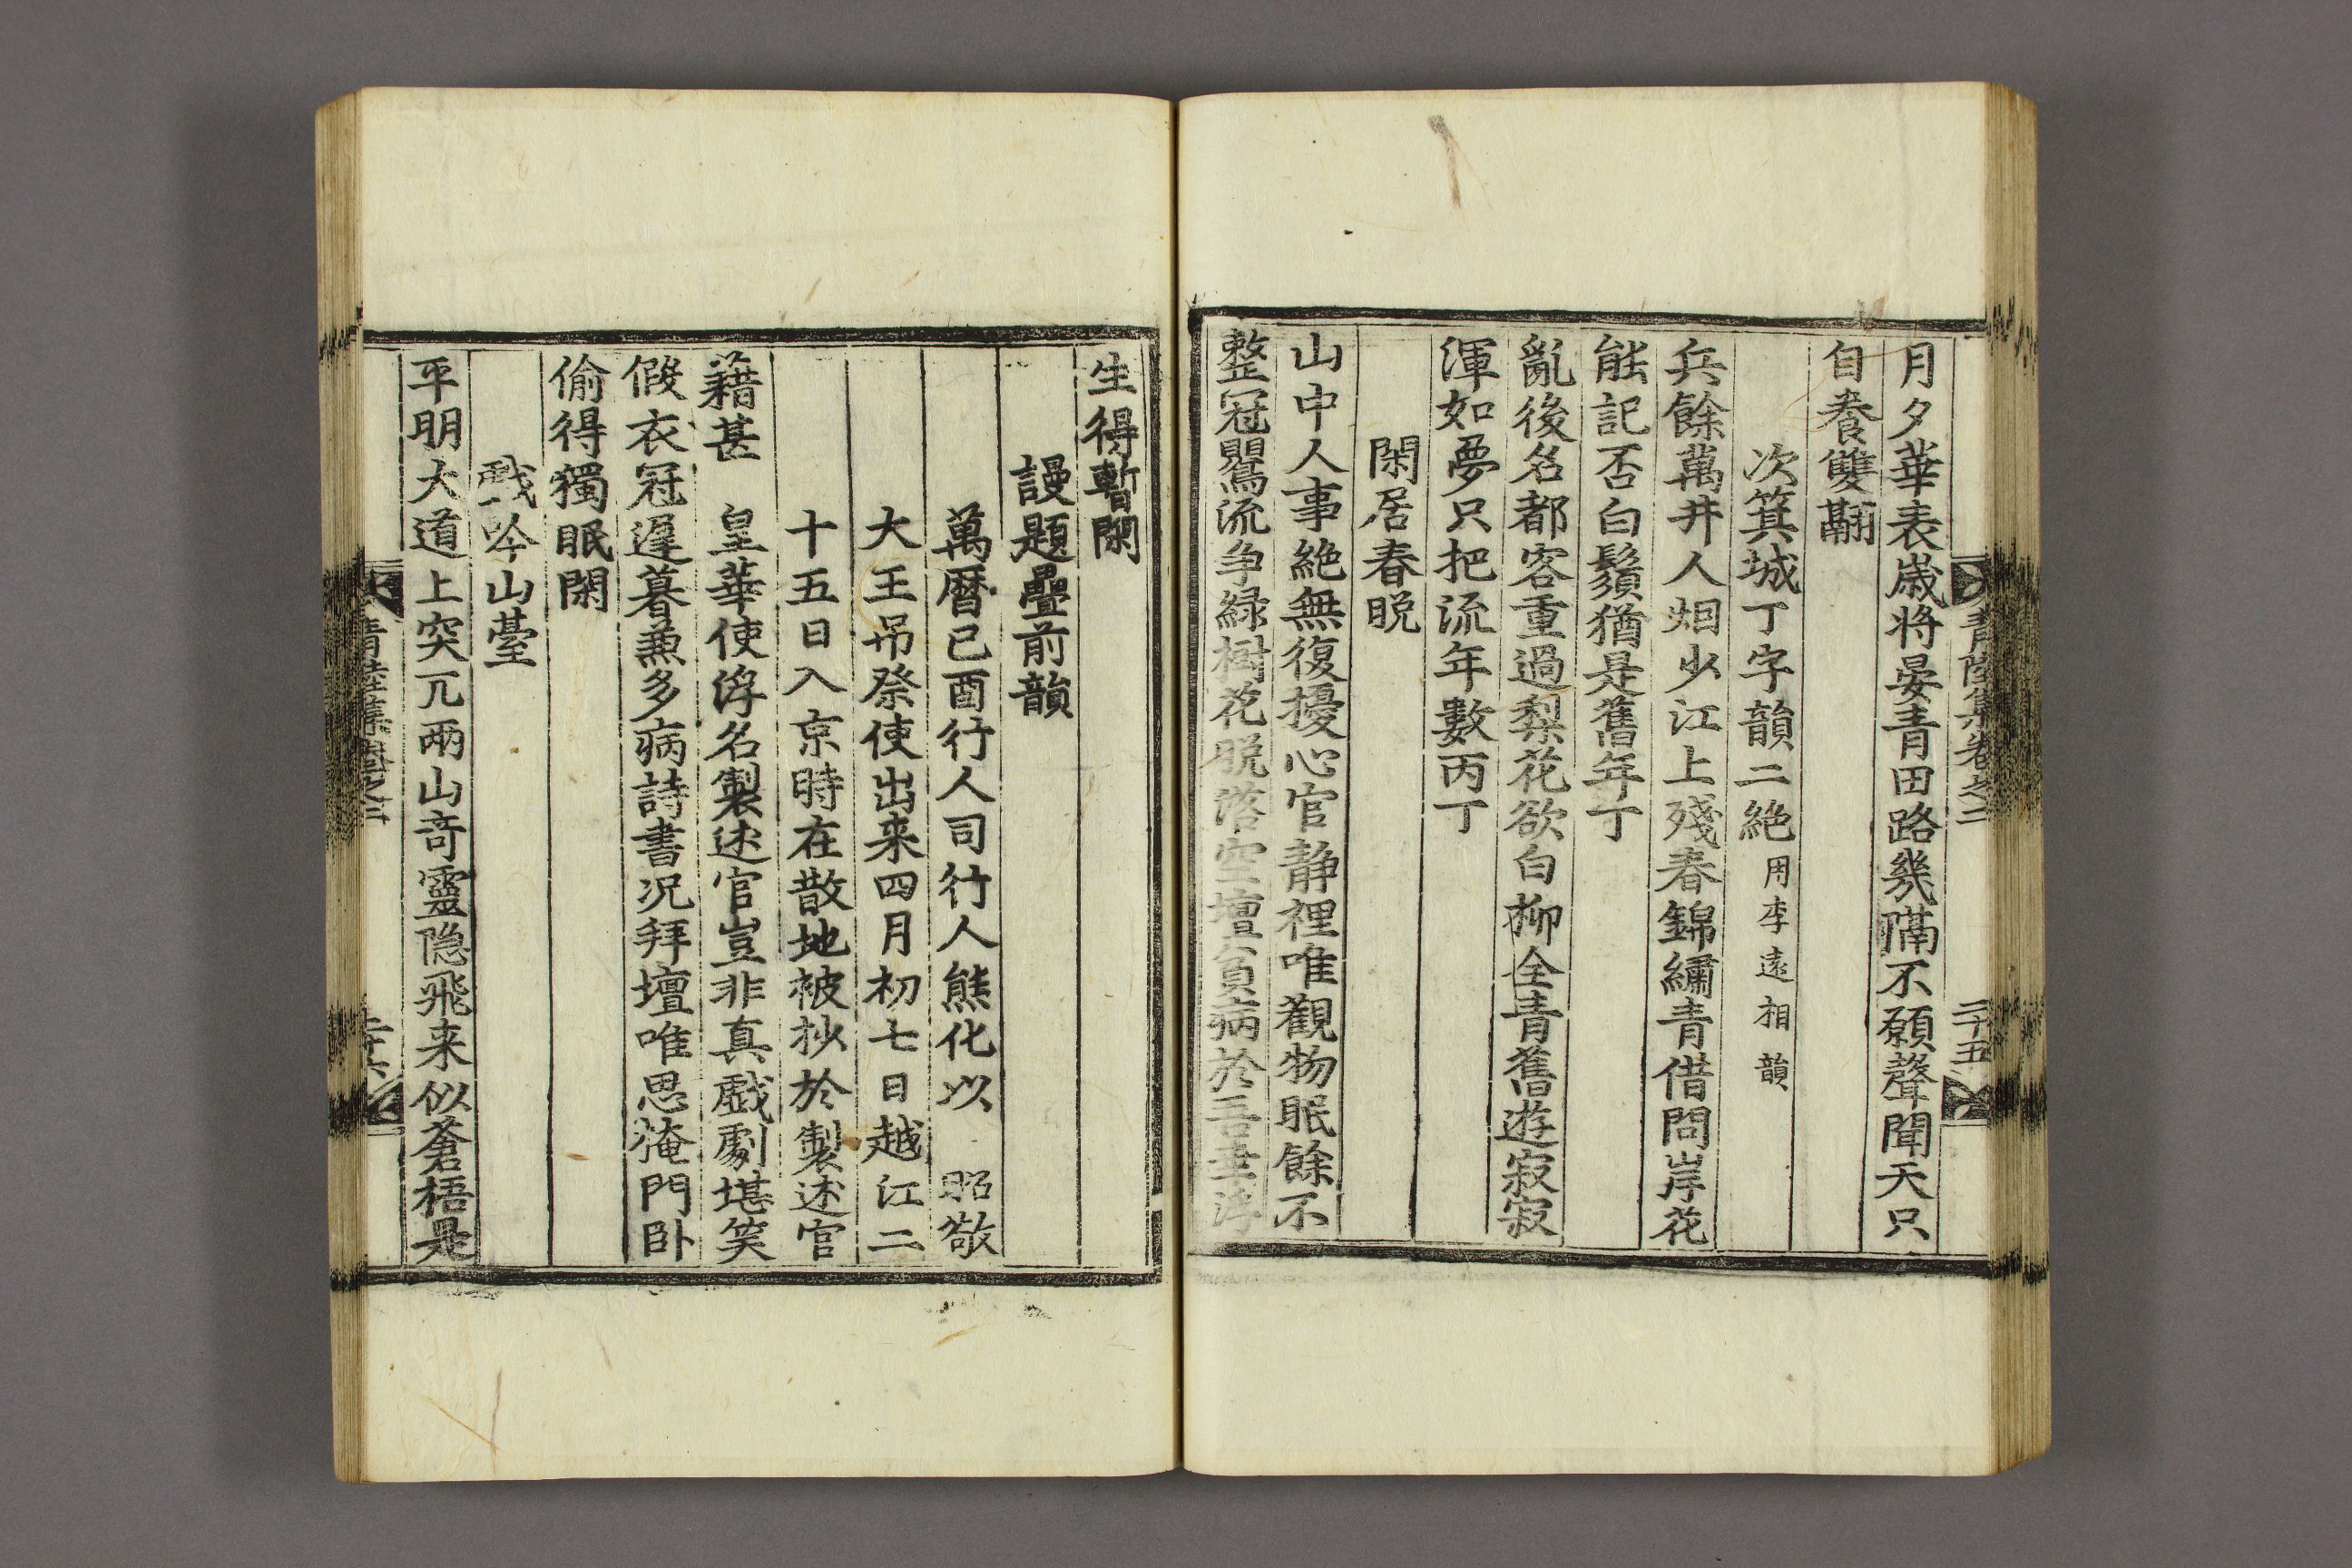 青陸集卷之二 二十五
月夕華表歲將晏青田路幾隔不願聲聞天只
自養雙翮
次箕城丁字韻二絶 用李遠相韻
兵餘萬井人烟少江上殘春錦繡青借問岸花
能記否白鬚猶是舊年丁
亂後名都客重過梨花欲白柳全青舊遊寂寂
渾如夢只把流年數丙丁
閑居春晩
山中人事絶無復擾心官静裡唯觀物眠餘不
整冠鸎流争緑樹花脱落空壇貧病於吾幸浮
生得暫閑
謾題疊前韻
萬曆己酉行人司行人熊化以 昭敬
大王吊祭使出来四月初七日越江二
十五日入京時在散地被抄於製述官
藉甚 皇華使浮名製述官豈非真戱劇堪笑
假衣冠遅暮兼多病詩書况拜壇唯思掩門卧
偷得獨眠閑
戱吟山臺
平明大道上突兀兩山竒靈隐飛来似蒼梧是
青陸集卷之二